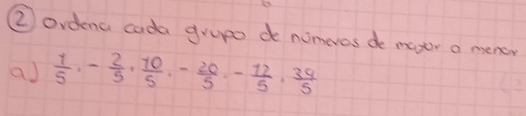 ② Ordena cada grupo de números de mayor a menor
a) 1/5, -2/5, 10/5, -20/5, -12/5, 39/5